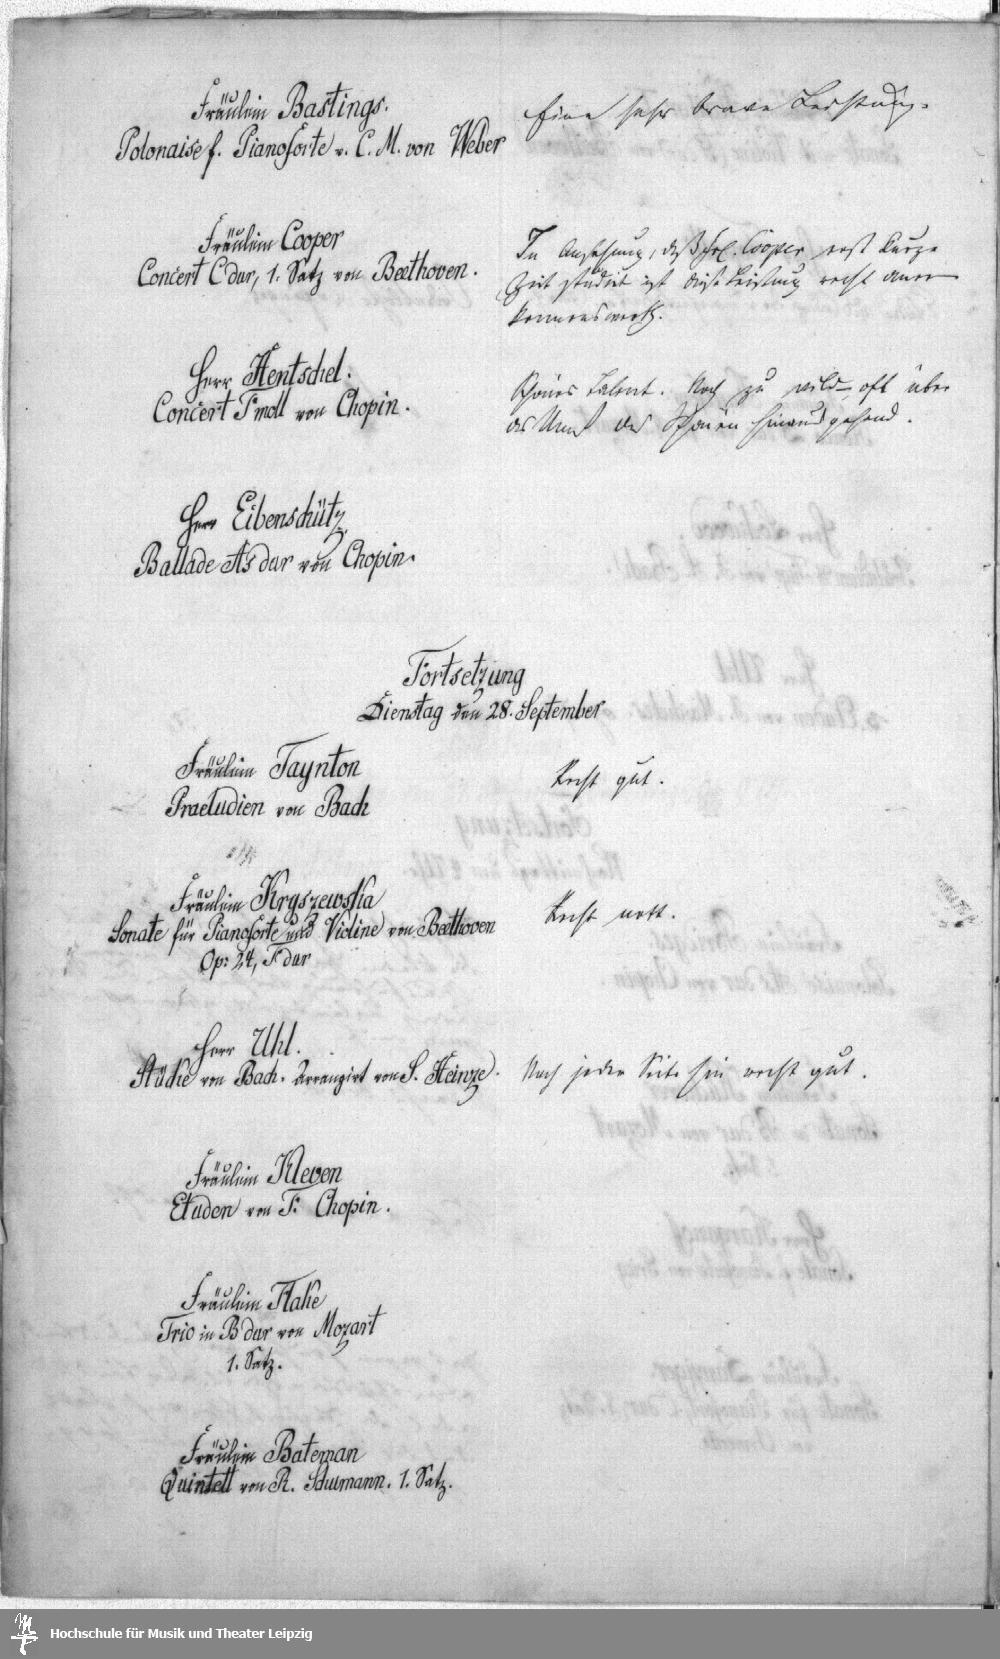 Fräulein Bastings.
Polonaise f. Pianoforte v. C. M. von Weber
Eine sehr brave Leistung.
Fräulein Cooper
Concert C dur, 1. Satz von Beethoven.
In Ansehung, daß Frl. Cooper erst kurze
Zeit studiert ist diese Leistung recht aner
kennenswerth.
Herr Hentschel.
Concert F moll von Chopin.
Schönes Talent. Noch zu wild, oft über
das Maß des Schönen hinausgehend.
Herr Eibenschütz.
Ballade As dur von Chopin.
Fortsetzung
Dienstag den 28. September
Fräulein Taynton
Praeludien von Bach
Recht gut.
Fräulein Kryszewska
Sonate für Pianoforte und Violine von Beethoven
Op: 24, F dur
Recht nett.
Herr Uhl.
Stücke von Bach. Arrangirt von S. Heinze.
Nach jeder Seite hin recht gut.
Fräulein Kleven
Etuden von F. Chopin.
Fräulein Flake
Trio in B dur von Mozart
1. Satz.
Fräulein Bateman
Quintett von R. Schumann. 1. Satz.
Hochschule für Musik und Theater Leipzig